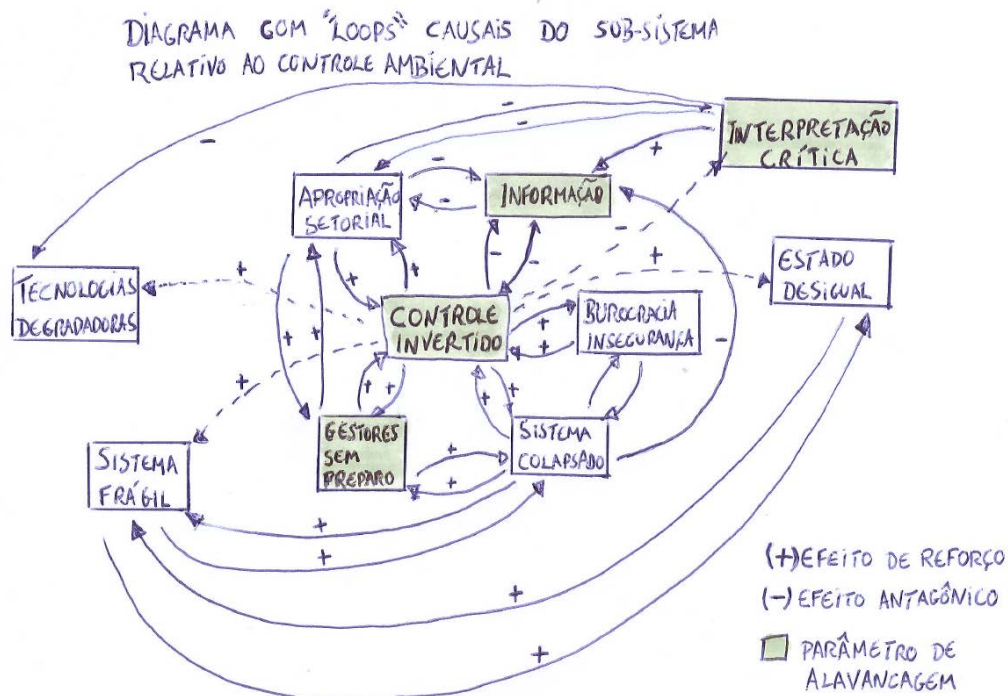 DIAGRAMA COM "LOOPS" CAUSAIS DO SUB-SISTEMA
RELATIVO AO CONTROLE AMBIENTAL
INTERPRETAÇÃO
CRÍTICA
APROPRIAÇÃO
SETORIAL
INFORMAÇÃO
TECNOLOGIAS
DEGRADADORAS
CONTROLE
INVERTIDO
BUROCRACIA
INSEGURANÇA
ESTADO
DESIGUAL
SISTEMA
FRÁGIL
GESTORES
SEM
PREPARO
SISTEMA
COLAPSADO
(+) EFEITO DE REFORÇO
(-) EFEITO ANTAGÔNICO
PARÂMETRO DE
ALAVANCAGEM